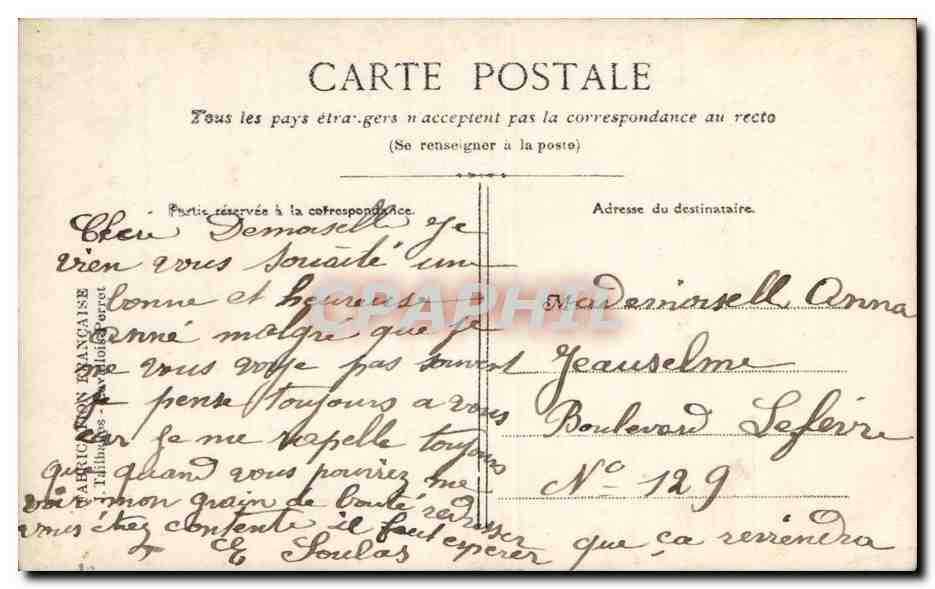 CARTE POSTALE
Tous les pays étrangers n'acceptent pas la correspondance au recto
(Se renseigner à la poste)
Partie réservée à la correspondance.
Adresse du destinataire.
Cheri Demoiselle Je
vien vous souaité une
bonne et heureuse
anné malgré que je
ne vous voye pas souvent
Je pense toujours a vous
car je me rapelle toujours
que quand vous pourriez me
voir mon grain de bauté
vous étiez contente il faut esperer que ça reviendra
E Soulas
Mademoisell Anna
Jeauselme
Boulevard Lefèvre
No 129
FABRICATION FRANÇAISE
J. Tailhades - Levallois-Perret
CPAPHIL